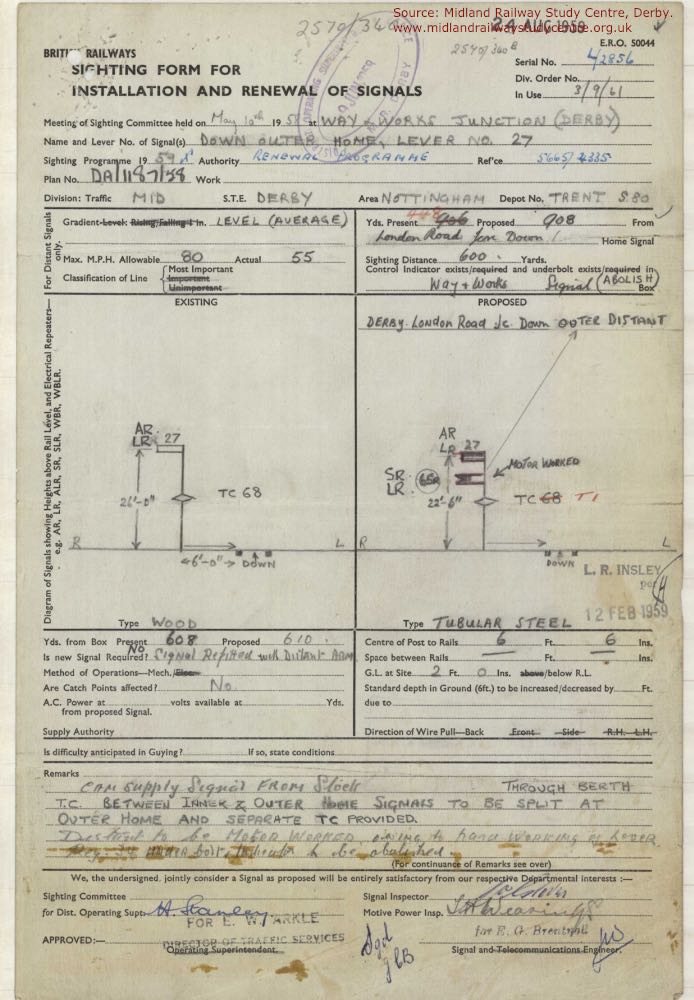 Source: Midland Railway Study Centre, Derby.
www.midlandrailwaystudycentre.org.uk
24 AUG 1959
2570/340
2570/340
BRITISH RAILWAYS
E.R.O. 50044
SIGHTING FORM FOR
INSTALLATION AND RENEWAL OF SIGNALS
Serial No. 42856
Div. Order No.
In Use 3/9/61
Meeting of Sighting Committee held on May 10th 195 at WAY & WORKS JUNCTION (DERBY)
Name and Lever No. of Signal(s) DOWN OUTER HOME, LEVER NO. 27
Sighting Programme 1959 Authority RENEWAL PROGRAMME Ref'ce 5665/2335
Plan No. DA/1187/58 Work
Division: Traffic MID S.T.E. DERBY Area NOTTINGHAM Depot No. TRENT S.80
For Distant Signals only.
Gradient—Level Rising/Falling 1 in. LEVEL (AVERAGE)
Max. M.P.H. Allowable 80 Actual 55
Classification of Line Most Important
Important
Unimportant
Yds. Present 906 Proposed 908 From
London Road Jcn Down Home Signal
Sighting Distance 600 Yards.
Control Indicator exists/required and underbolt exists/required in
Way & Works Signal (ABOLISH) Box
Diagram of Signals showing Heights above Rail Level, and Electrical Repeaters—
e.g. AR, LR, ALR, SR, SLR, WBR, WBLR.
EXISTING
AR
LR 27
26'-0"
TC 68
R L
6'-0" DOWN
Type WOOD
PROPOSED
DERBY. London Road Jc. Down OUTER DISTANT
AR
LR 27
MOTOR WORKED
SR
LR 65R
22'-6"
TC 68 T1
R L
DOWN
L. R. INSLEY
per
12 FEB 1959
Type TUBULAR STEEL
Yds. from Box Present 608 Proposed 610
Is new Signal Required? NO Signal Refitted with Distant ARM
Method of Operations—Mech./Elec.
Are Catch Points affected? No
A.C. Power at volts available at Yds.
from proposed Signal.
Supply Authority
Centre of Post to Rails 6 Ft. 6 Ins.
Space between Rails Ft. Ins.
G.L. at Site 2 Ft. 0 Ins. above/below R.L.
Standard depth in Ground (6ft.) to be increased/decreased by Ft.
due to
Direction of Wire Pull—Back Front Side R.H. L.H.
Is difficulty anticipated in Guying? If so, state conditions
Remarks
Can supply Signal FROM Stock THROUGH BERTH
T.C. BETWEEN INNER & OUTER HOME SIGNALS TO BE SPLIT AT
OUTER HOME AND SEPARATE TC PROVIDED.
Distant to be MOTOR WORKED owing to hard WORKING of Lever
under bolt to be abolished.
(For continuance of Remarks see over)
We, the undersigned, jointly consider a Signal as proposed will be entirely satisfactory from our respective Departmental interests :—
Sighting Committee
for Dist. Operating Supt. H. Stanley
FOR E. W. ARKLE
APPROVED:—
DIRECTOR OF TRAFFIC SERVICES
Operating Superintendent.
Signal Inspector
Motive Power Insp.
for E. G. Brentnall
Sgd
Signal and Telecommunications Engineer.